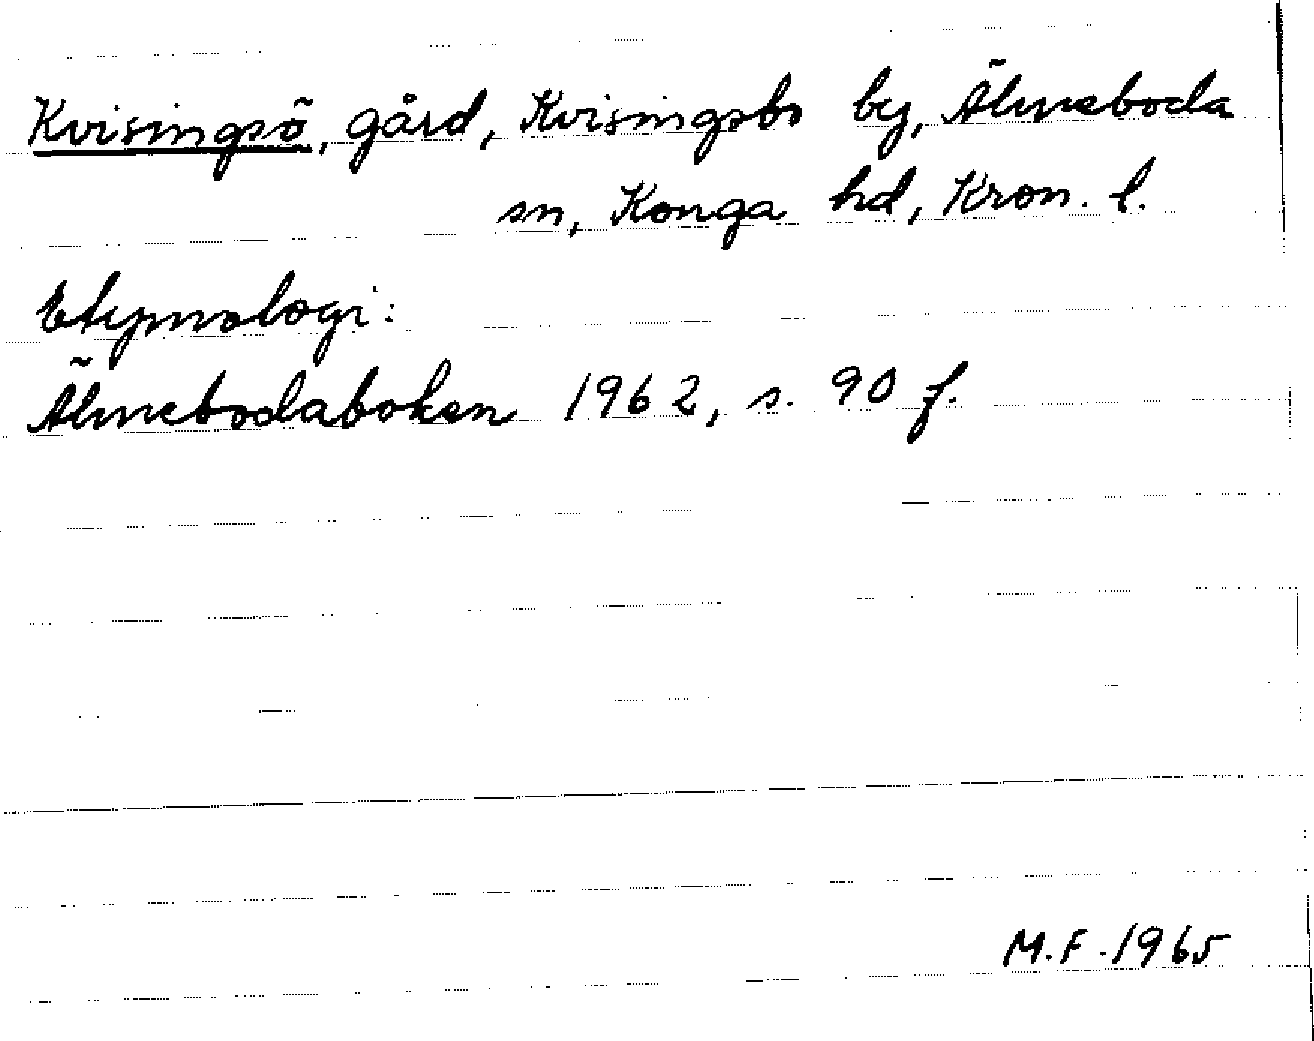 Kvisingsö, gård, Kvisingsbo by, Älmeboda
sn, Konga hd, Kron. l.
Etymologi:
Älmebodaboken 1962, s. 90 f.
M.F. 1965